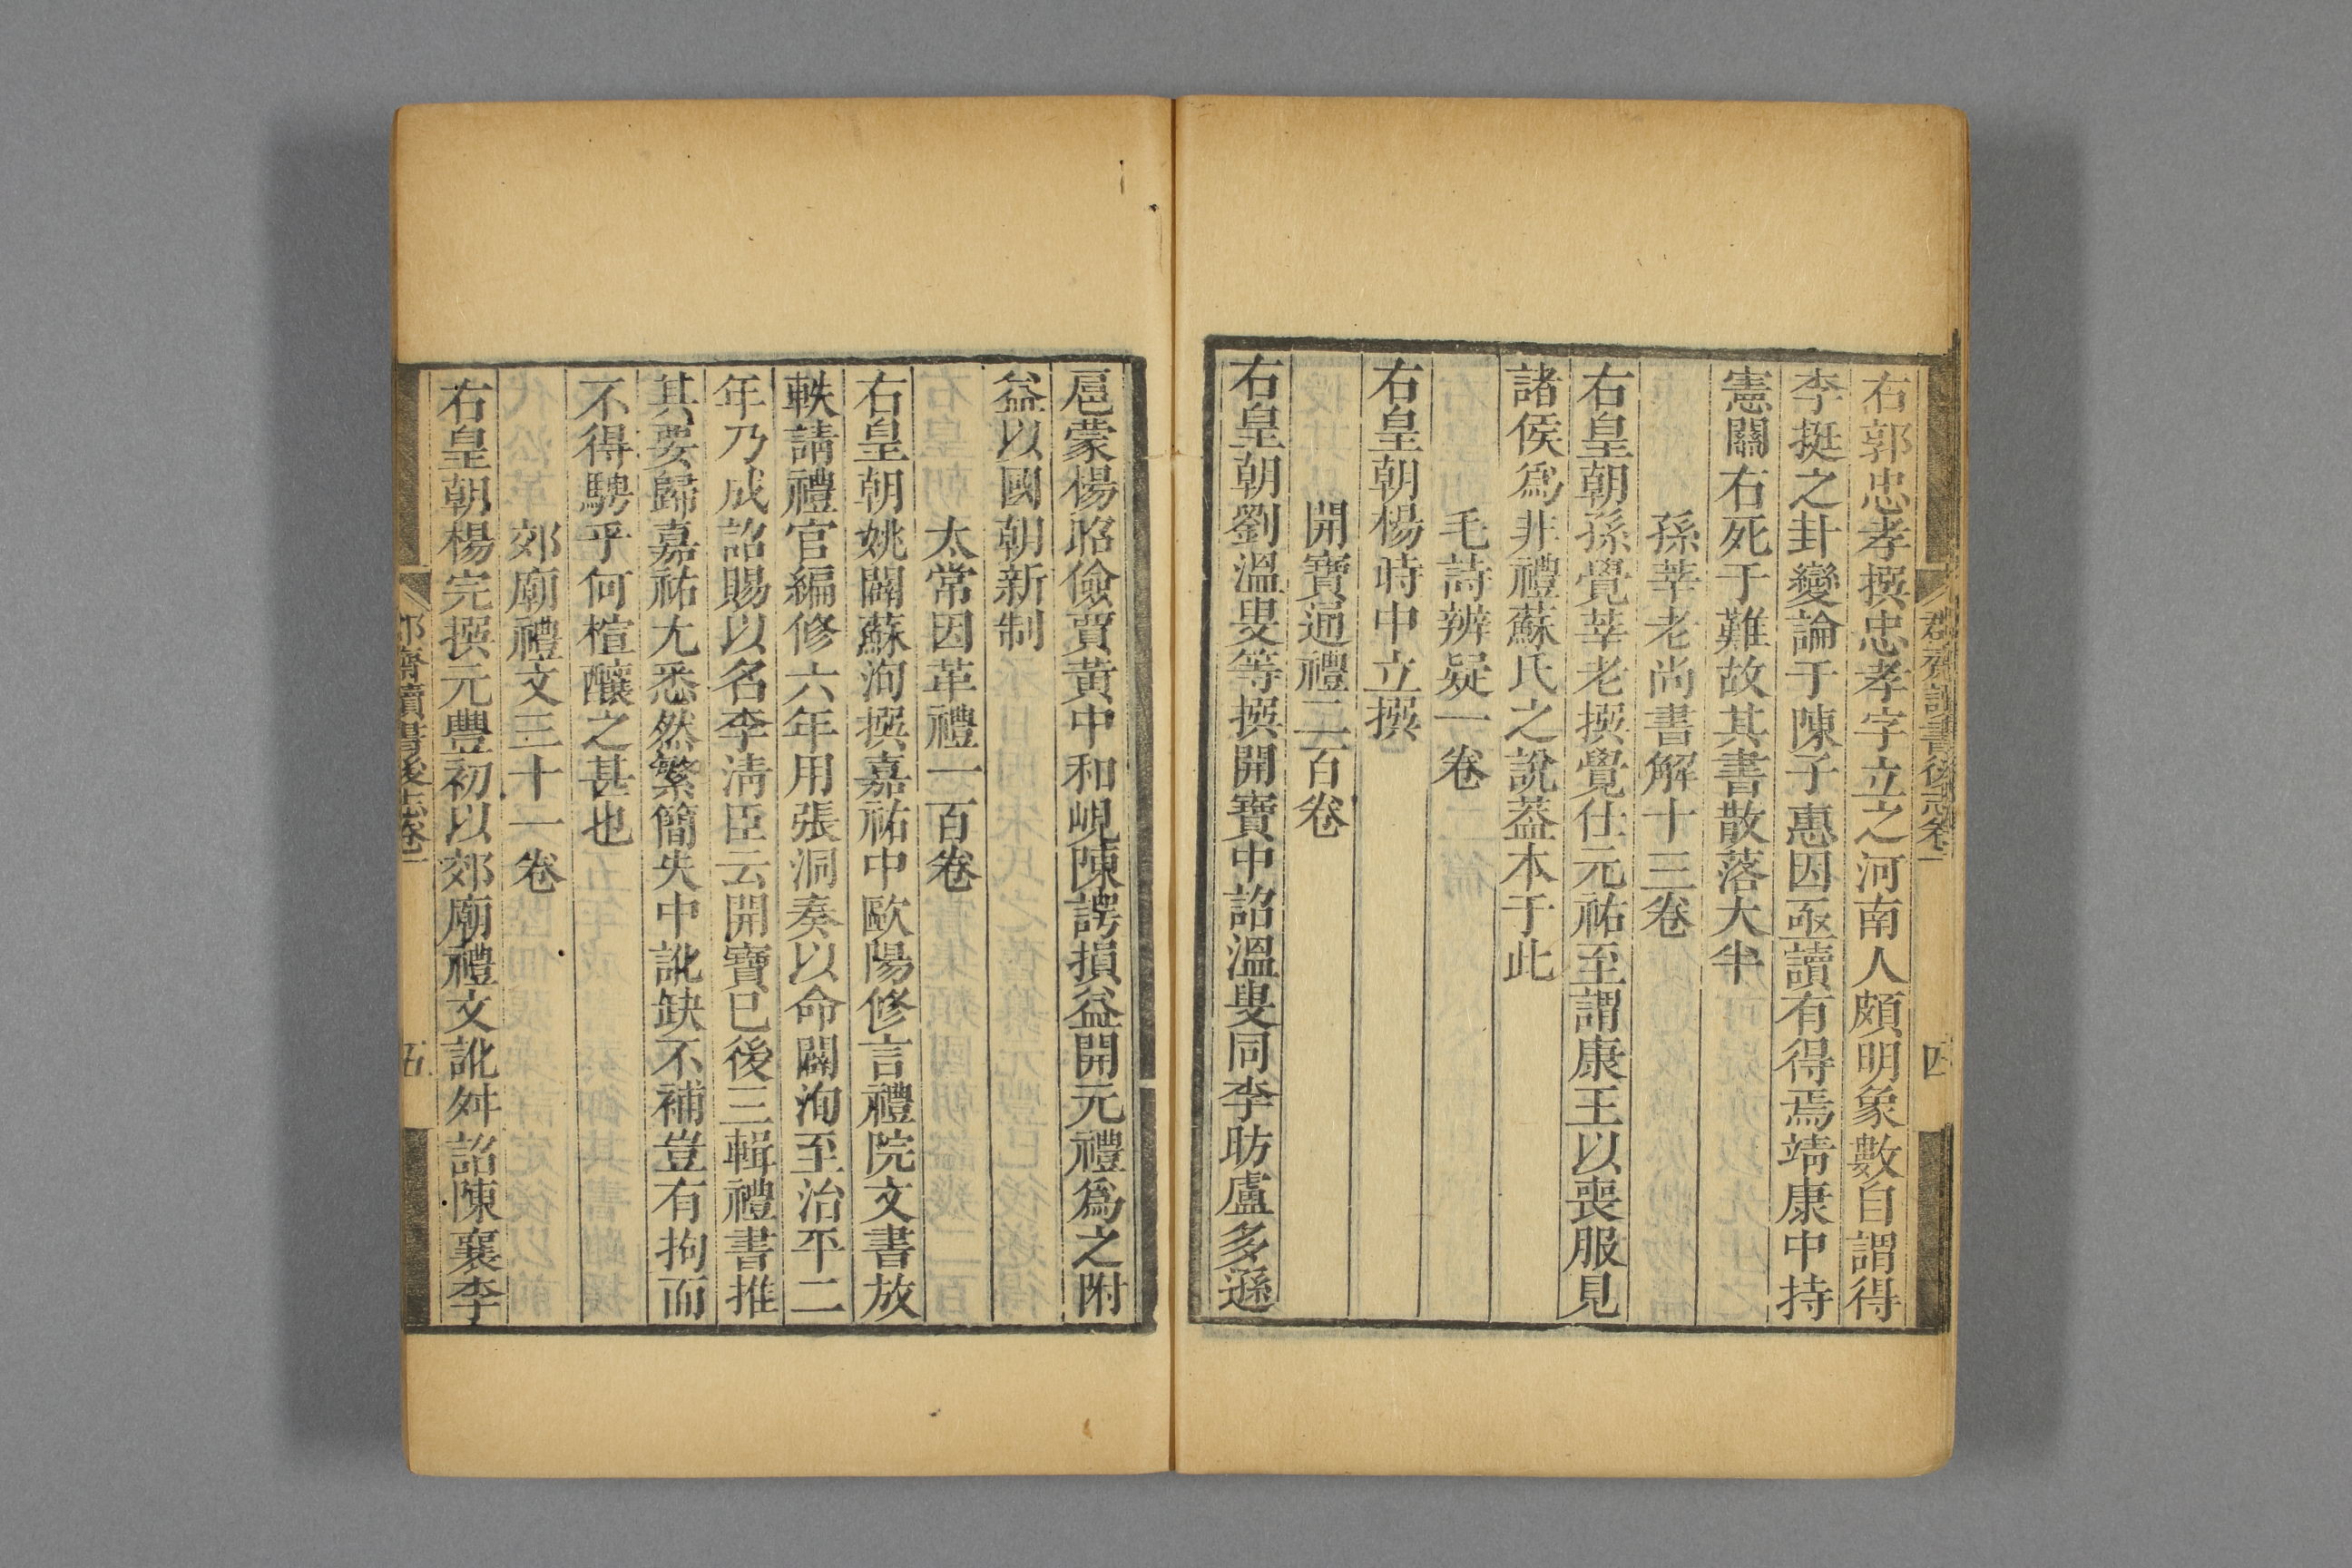 右郭忠孝撰忠孝字立之河南人頗明象數自謂得
李挺之卦變論于陳子惠因亟讀有得焉靖康中持
憲關右死于難故其書散落大半
孫莘老尚書解十三卷
右皇朝孫覺莘老撰覺仕元祐至謂康王以喪服見
諸侯爲非禮蘇氏之說蓋本于此
毛詩辨疑一卷
右皇朝楊時中立撰
開寶通禮二百卷
右皇朝劉溫叟等撰開寶中詔溫叟同李昉盧多遜
扈蒙楊昭儉賈黃中和峴陳諤損益開元禮爲之附
益以國朝新制
太常因革禮一百卷
右皇朝姚闢蘇洵撰嘉祐中歐陽修言禮院文書放
軼請禮官編修六年用張洞奏以命闢洵至治平二
年乃成詔賜以名李淸臣云開寶已後三輯禮書推
其要歸嘉祐尤悉然繁簡失中訛缺不補豈有拘而
不得騁乎何楦釀之甚也
郊廟禮文三十一卷
右皇朝楊完撰元豐初以郊廟禮文訛舛詔陳襄李
郡齋讀書後志卷一
五